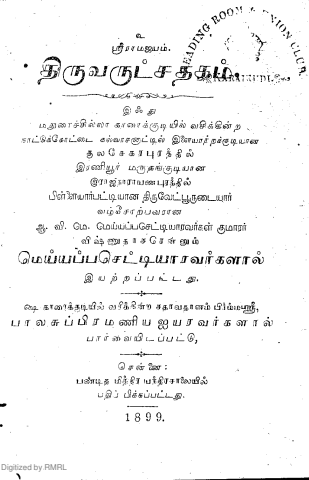 உ
ஸ்ரீராமஜயம்.
READING ROOM & UNION CLUB
திருவருட்சதகம்.
இஃது
மதுரைச்சில்லா காரைக்குடியில் வசிக்கின்ற
நாட்டுக்கோட்டை கல்வாசனாட்டில் இளையாற்றக்குடியான
குலசேகரபுரத்தில்
இரணியூர் மருதங்குடியான
இராஜநாராயணபுரத்தில்
பிள்ளையார்பட்டியான திருவேட்பூருடையார்
வழிச்சார்பவரான
ஆ. வி. மெ. மெய்யப்பசெட்டியாரவர்கள் குமாரர்
விஷ்ணுதாசரென்னும்
மெய்யப்பசெட்டியாரவர்களால்
இயற்றப்பட்டது.
ஷ காரைக்குடியில் வசிக்கின்ற சதாவதானம் பிர்ம்மஸ்ரீ,
பாலசுப்பிரமணிய ஐயரவர்களால்
பார்வையிடப்பட்டு,
சென்னை:
பண்டித மித்திர யந்திரசாலையில்
பதிப்பிக்கப்பட்டது.
1899.
Digitized by RMRL